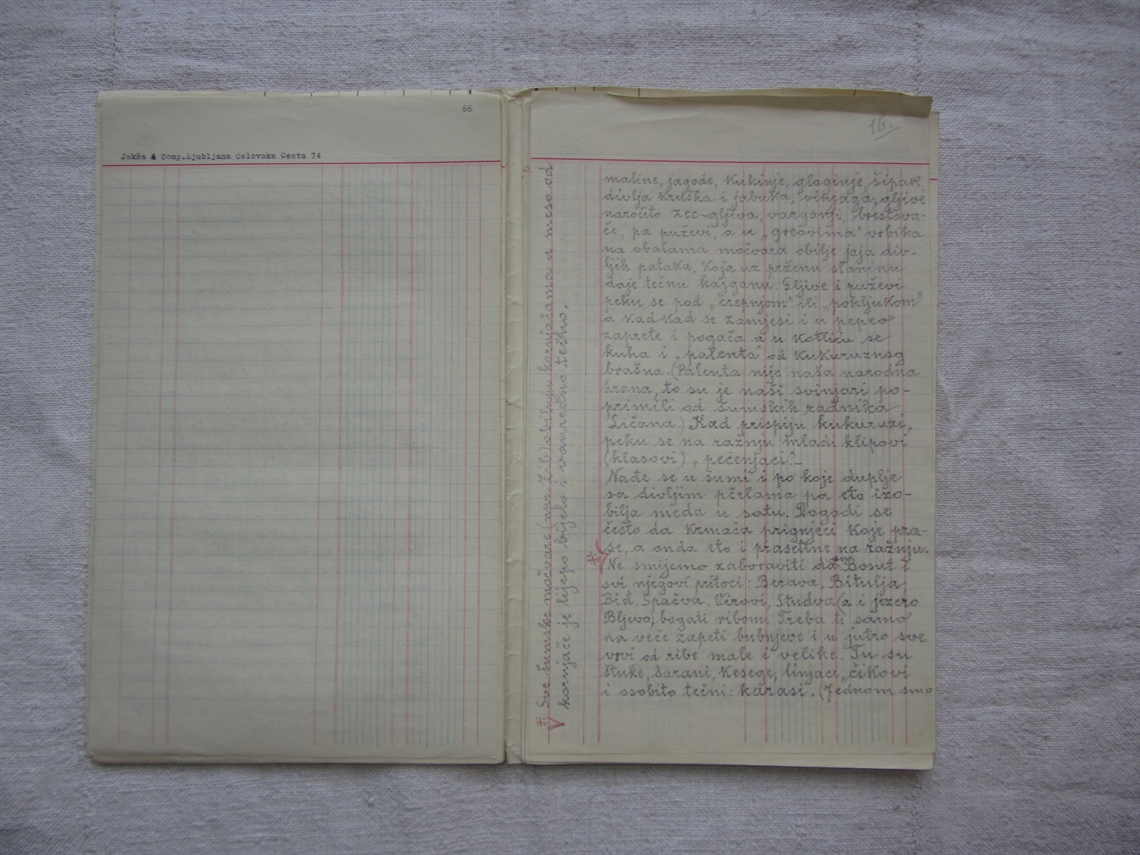 66
Jakša & Comp.Ljubljana Celovska Cesta 74
16.
maline, jagode, kukinje, gloginje, šipak
divlja kruška i jabuka, gljive
naročito zec-gljiva, varganji, brestova-
če, pa puževi, a u „grebvima“ vrbika
na obalama močvara obilje jaja div-
ljih pataka, koja uz prženu slaninu
daje tečnu kajganu. Gljive i puževi
peku se pod „črepnjom“ ili „pokljukom“
a kad-kad se zamjesi i u pepeo
zaprete i pogača a u kotliću se
kuha i „palenta“ od kukuruznog
brašna. (Palenta nije naša narodna
hrana, to su je naši svinjari po-
primili od šumskih radnika
Ličana.) Kad prispiju kukuruzi,
peku se na ražnju mladi klipovi
(klasovi) „pečenjaci“.
Nađe se u šumi i po koje duplje
sa divljim pčelama pa eto izo-
bilja meda u satu. Dogodi se
često da krmača prignječi koje pra-
se, a onda eto i prasetine na ražnju.
Ne smijemo zaboraviti da Bosut i
svi njegovi pritoci: Berava, Bitulja,
Biđ, Spačva, Virovi, Studva (a i jezero
Bljevo) bogati ribom. Treba ti samo
na veče zapeti bubnjeve i u jutro sve
vrvi od ribe male i velike. Tu su
štuke, šarani, kesege, linjaci, čikovi
i osobito tečni: karasi. (Jednom smo
Sve šumske močvare (npr. Žib) obiluju kornjačama a meso od
kornjače je lijepo bijelo i vanredno teško.